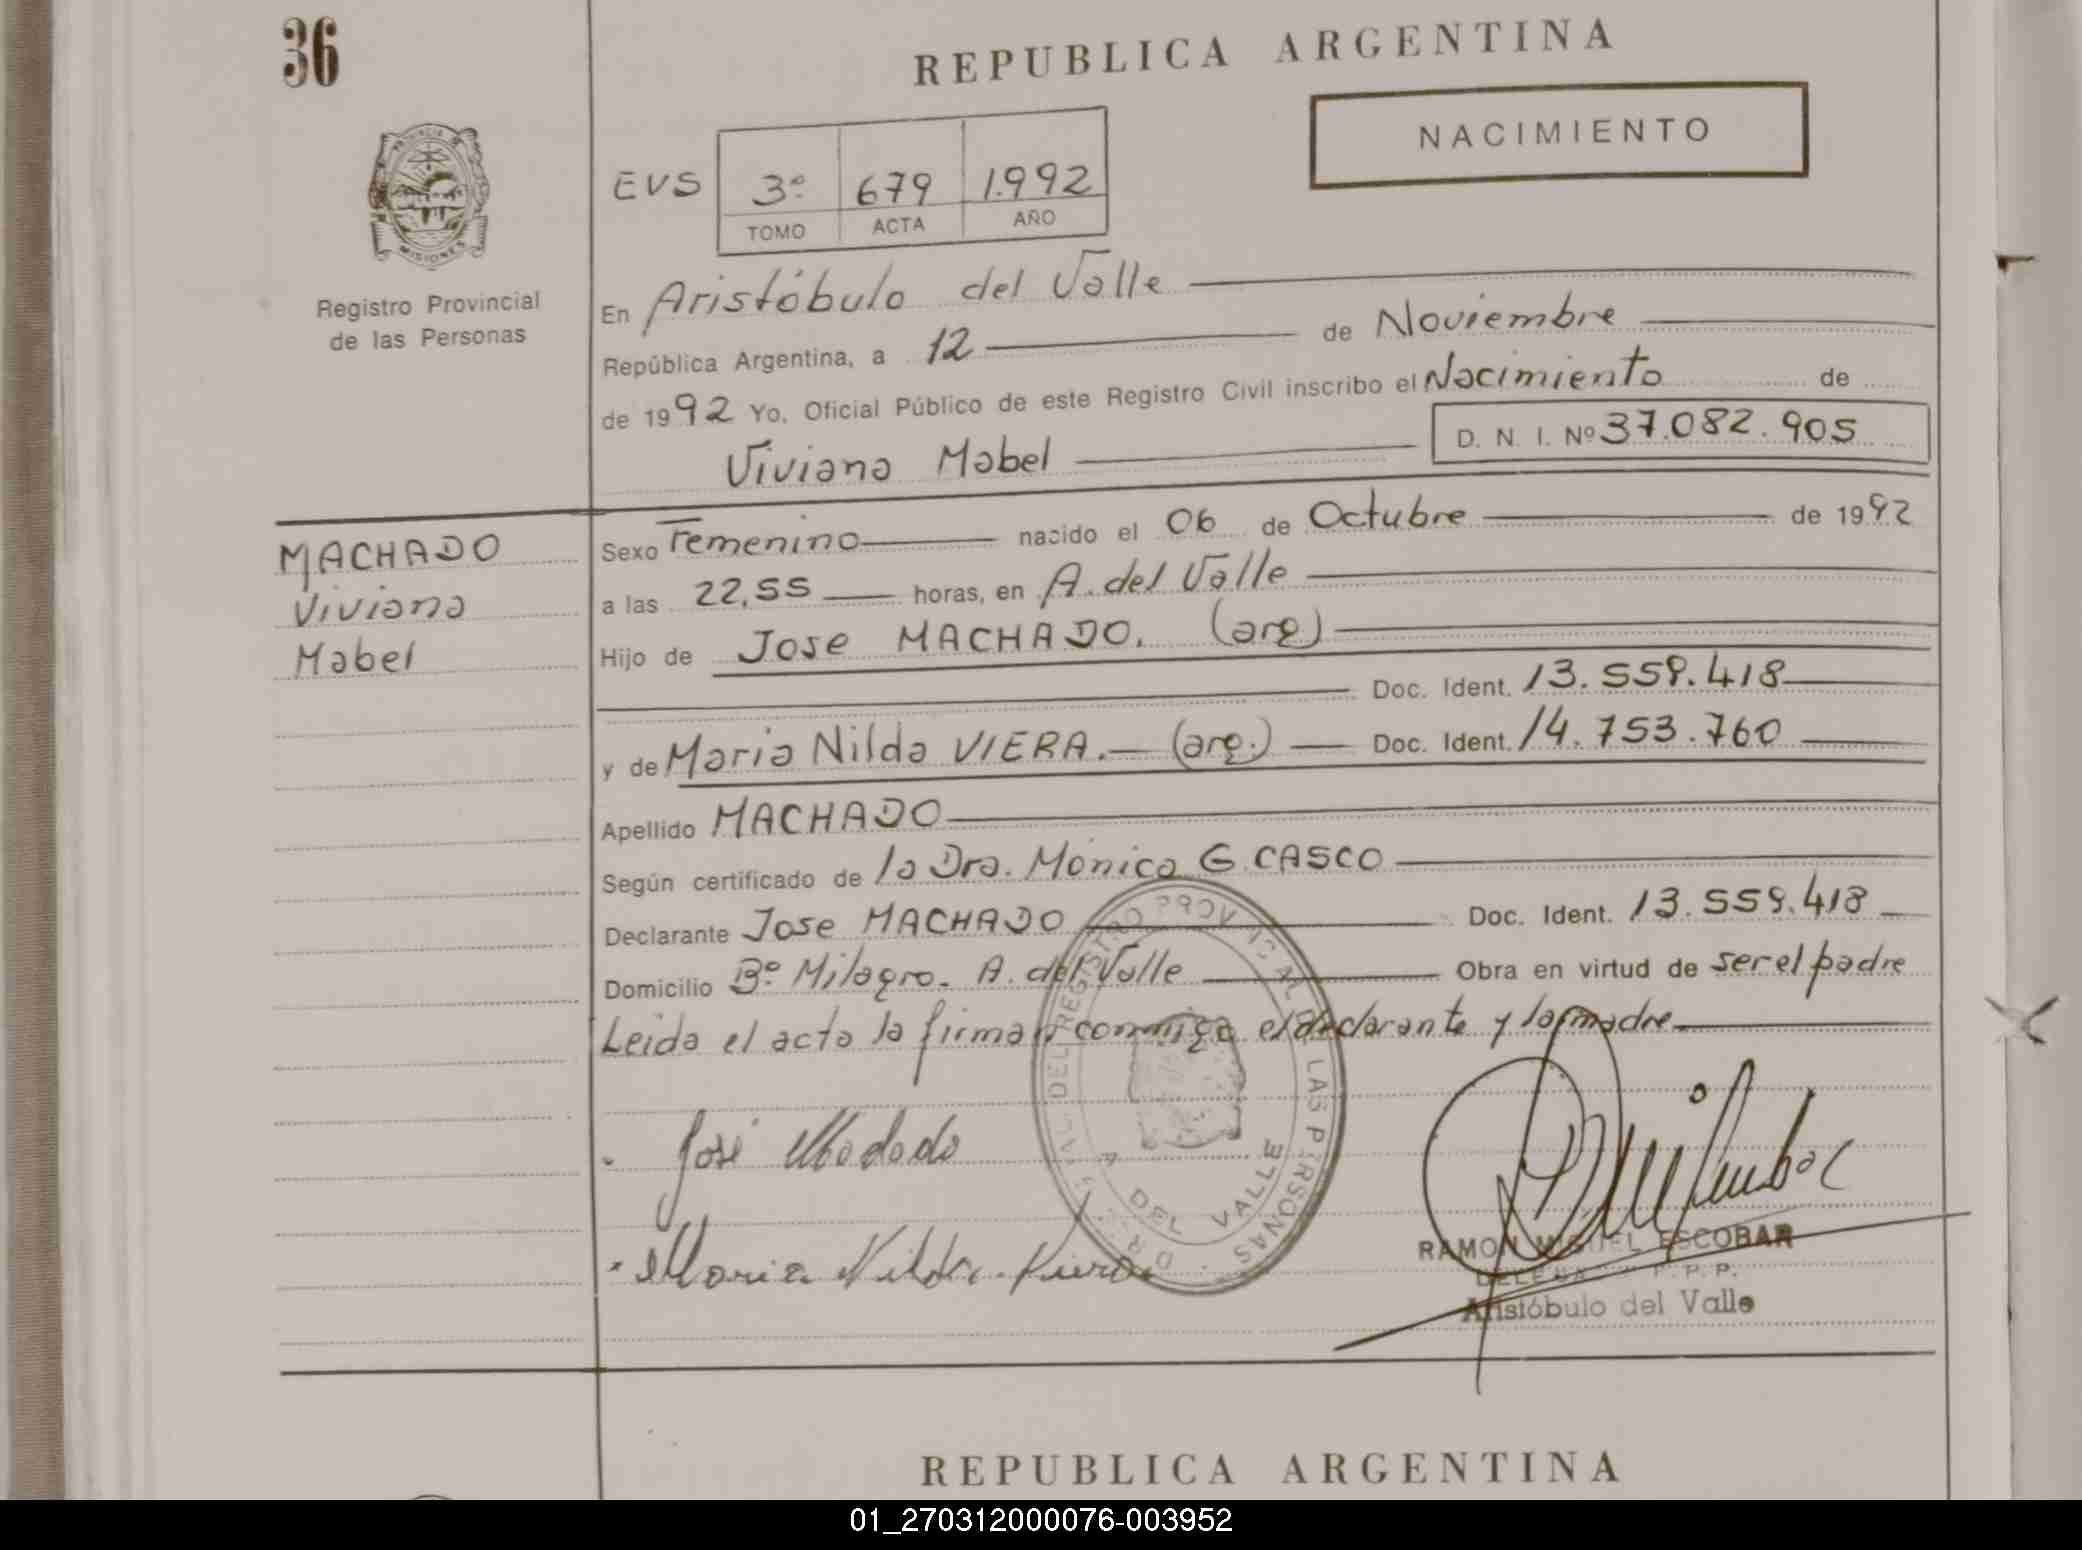 36
REPUBLICA ARGENTINA
NACIMIENTO
EVS 3º 679 1.992
TOMO ACTA AÑO
MISIONES
Registro Provincial
de las Personas
En Aristóbulo del Valle
República Argentina, a 12 de Noviembre
de 1992 Yo, Oficial Público de este Registro Civil inscribo el Nacimiento de
Viviana Mabel D. N. I. Nº 37.082.905
MACHADO
Viviana
Mabel
Sexo Femenino nacido el 06 de Octubre de 1992
a las 22,55 horas, en A. del Valle
Hijo de Jose MACHADO. (arg)
Doc. Ident. 13.559.418
y de Maria Nilda VIERA. (arg.) Doc. Ident. 14.753.760
Apellido MACHADO
Según certificado de la Dra. Mónica G. CASCO
Declarante Jose MACHADO Doc. Ident. 13.559.418
Domicilio Bº Milagro. A. del Valle Obra en virtud de ser el padre
Leida el acta la firman conmigo el declarante y la madre
REGISTRO PROVINCIAL LAS PERSONAS
A DEL VALLE
José Machado
Maria Nilda Viera
RAMON MIGUEL ESCOBAR
Aristóbulo del Valle
REPUBLICA ARGENTINA
01_270312000076-003952